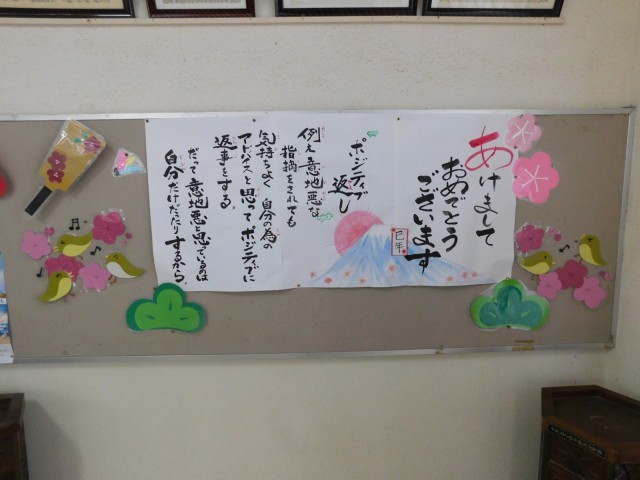 あけまして
おめでとう
ございます
巳年
ポジティブ
返し
例え意地悪な
指摘をされても
気持ちよく自分の為の
アドバイスと思ってポジティブに
返事をする
だって意地悪と思っているのは
自分だけだたりするから。